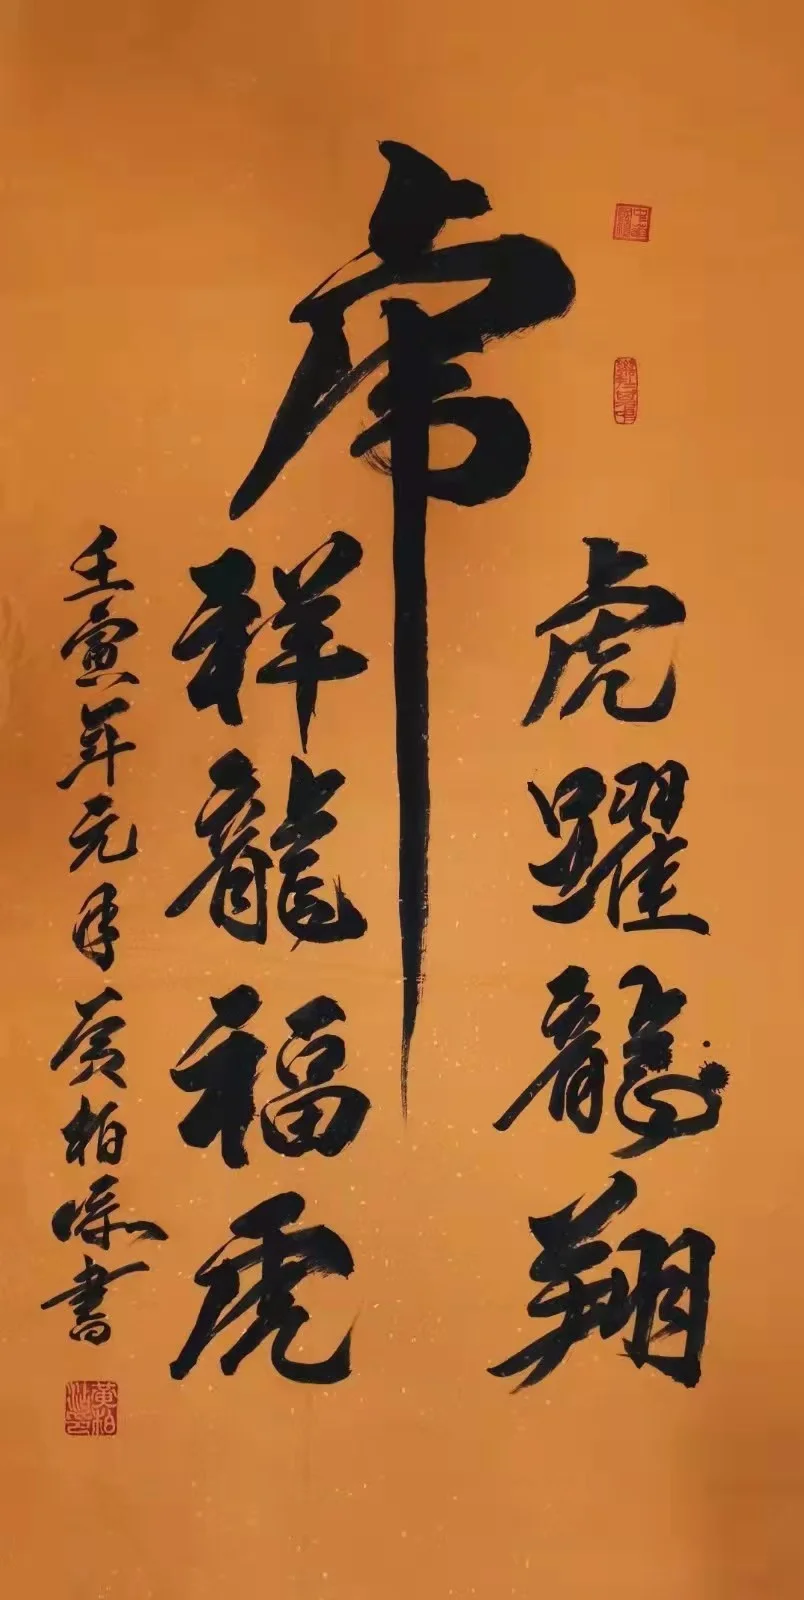 虎
虎躍龍翔
祥龍福虎
壬寅年元月黄柏添書
黄柏